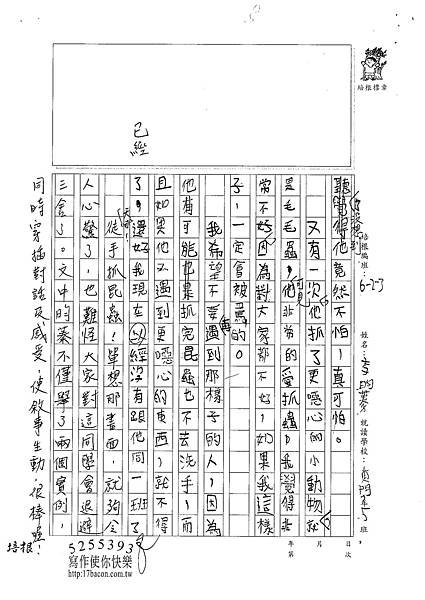 培根標章
培根編班：6-2-3
姓名：
就讀學校：
班
年 月 日
第 次
聽覺得他竟然不怕！真可怕。
沒想到
又有一次他抓了更噁心的小動物就
是毛毛蟲，他非常的愛抓蟲，我覺得非
可見
常不好，因為對大家都不好，如果我這樣
子，一定會被罵的。
我希望不要遇到那樣子的人，因為
再
他有可能也是抓完昆蟲也不去洗手，而
且如果他又遇到更噁心的東西，就不得
了，還好我現在以經沒有跟他同一班了。
已經
天哪！
徒手抓昆蟲！單想那畫面，就夠令
人心驚了，也難怪大家對這同學會退避
三舍了。文中的蓁不僅舉了兩個實例，
同時穿插對話及感受，使敘事生動，很棒喔！
培根
5255393
寫作使你快樂
http://17bacon.com.tw/